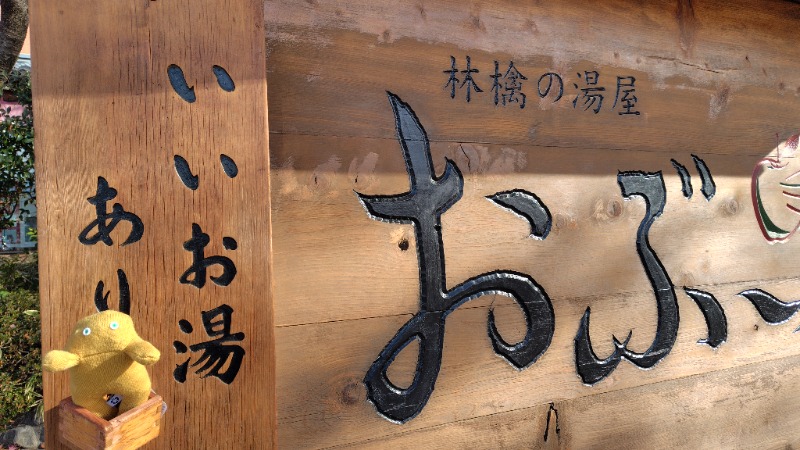 いいお湯
あり
林檎の湯屋
おぶ〜